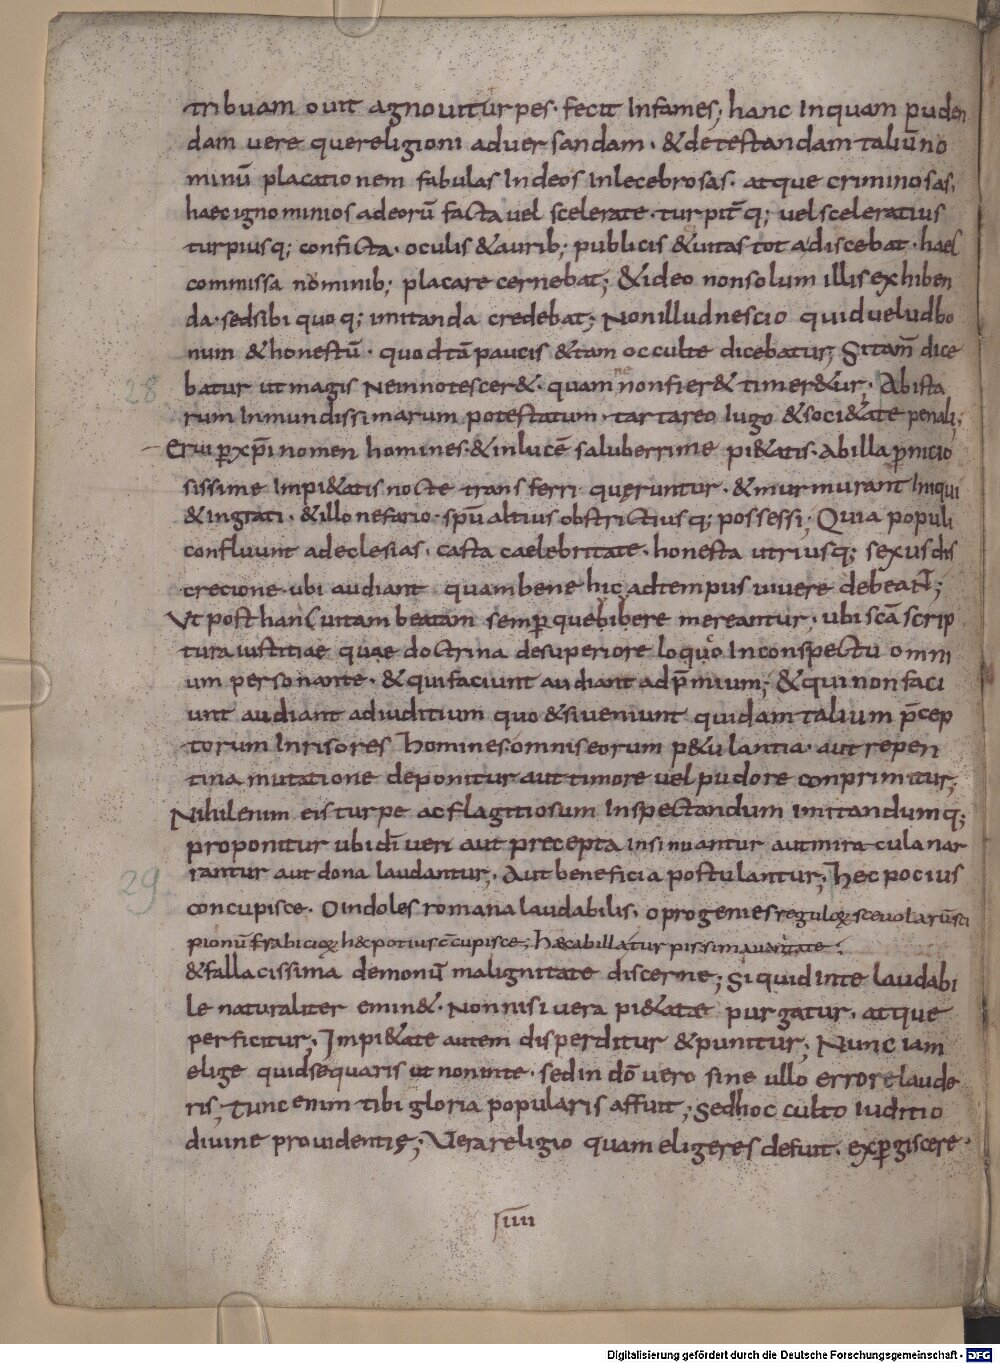 tribuam ouit agnouitur pes· fecit Infames; hanc Inquam puden
dam uere quereligioni aduersandam· &detestandam taliū no
minū placationem fabulas Indeos Inlecebrosas· atque criminosas,
haecignominios adeorū facta uel scelerate· turpit̄q; uel sceleratius
turpiusq; conficta· oculis &aurib; publicis &uitas tot adiscebat· haec
commissa nominib; placare cernebat; &ideo nonsolum illis exhiben
da· sedsibi quoq; imitanda credebat; Nonilludnescio quid uelud bo
num &honestū· quod tā paucis &tam occulte dicebatur; Sitam̄ dice
28 batur ut magis Neinnotescer&· quam ne nonfier& timer&ur; Abista
rum Inmundissimarum potestatum· tartareo Iugo &soci&ate penali;
Erui ꝑxp̄i nomen homines·&inlucē saluberrime pi&atis· Abilla ꝑnicio
sissime Impi&atis nocte transferri queruntur· &murmurant Iniqui
&ingrati· &illo nefario· spū altius obstrictiusq; possessi; Quia populi
confluunt adeclesias· casta caelebritate· honesta utriusq; sexus dis
crecione· ubi audiant quambene hic adtempus uiuere debeant;
Ut posthanc uitam beatam semꝑ quebibere mereantur· ubi scā scrip
tura iustitiae quae doctrina desuperiore loquo Inconspectu omni
um personante· &quifaciunt audiant adp̄mium; &qui nonfaci
unt audiant adiuditium quo &siueniunt quidam talium p̄cep
torum Inrisores homines omniseorum p&ulantia· aut repen
tina mutatione deponitur aut timore uel pudore conprimitur;
Nihilenim eis turpe ac flagitiosum Inspectandum imitandumq;
proponitur ubi dī ueri aut precepta insinuantur aut miracula nar
29. rantur aut dona laudantur; Aut beneficia postulantur; Hec pocius
concupisce· O indoles romana laudabilis· o progenies reguloꝝ sceuolarū sci
pionū frabicioꝝ hęc potius c̄cupisce; hęc abilla turpissima uanitate :
&fallacissima demonū malignitate discerne; Si quid inte laudabi
le naturaliter emin&· Nonnisi uera pi&atae purgatur· atque
perficitur; Impi&ate autem disperditur &punitur; Nunc iam
elige quidsequaris ut non inte· sed in dō uero sine ullo errore laude
ris; Tunc enim tibi gloria popularis affuit; Sedhoc culto Iuditio
diuine prouidentię; Uera religio quam eligeres defuit· exꝑgiscere·
iiii
Digitalisierung gefördert durch die Deutsche Forschungsgemeinschaft - DFG